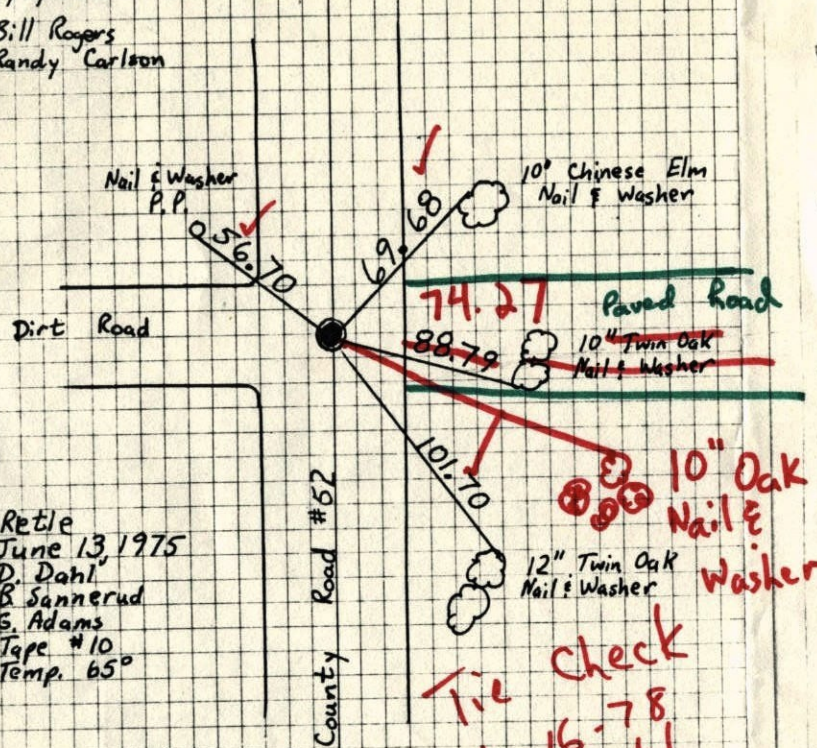 Bill Rogers
Randy Carlson
Nail & Washer
P.P.
56.70
69.68
10" Chinese Elm
Nail & Washer
74.27
Paved Road
Dirt Road
88.79
10" Twin Oak
Nail & Washer
101.70
10" Oak
Nail &
Washer
County Road #52
12" Twin Oak
Nail & Washer
Retie
June 13, 1975
D. Dahl
B Sannerud
G. Adams
Tape #10
Temp. 65°
Tie Check
16-78